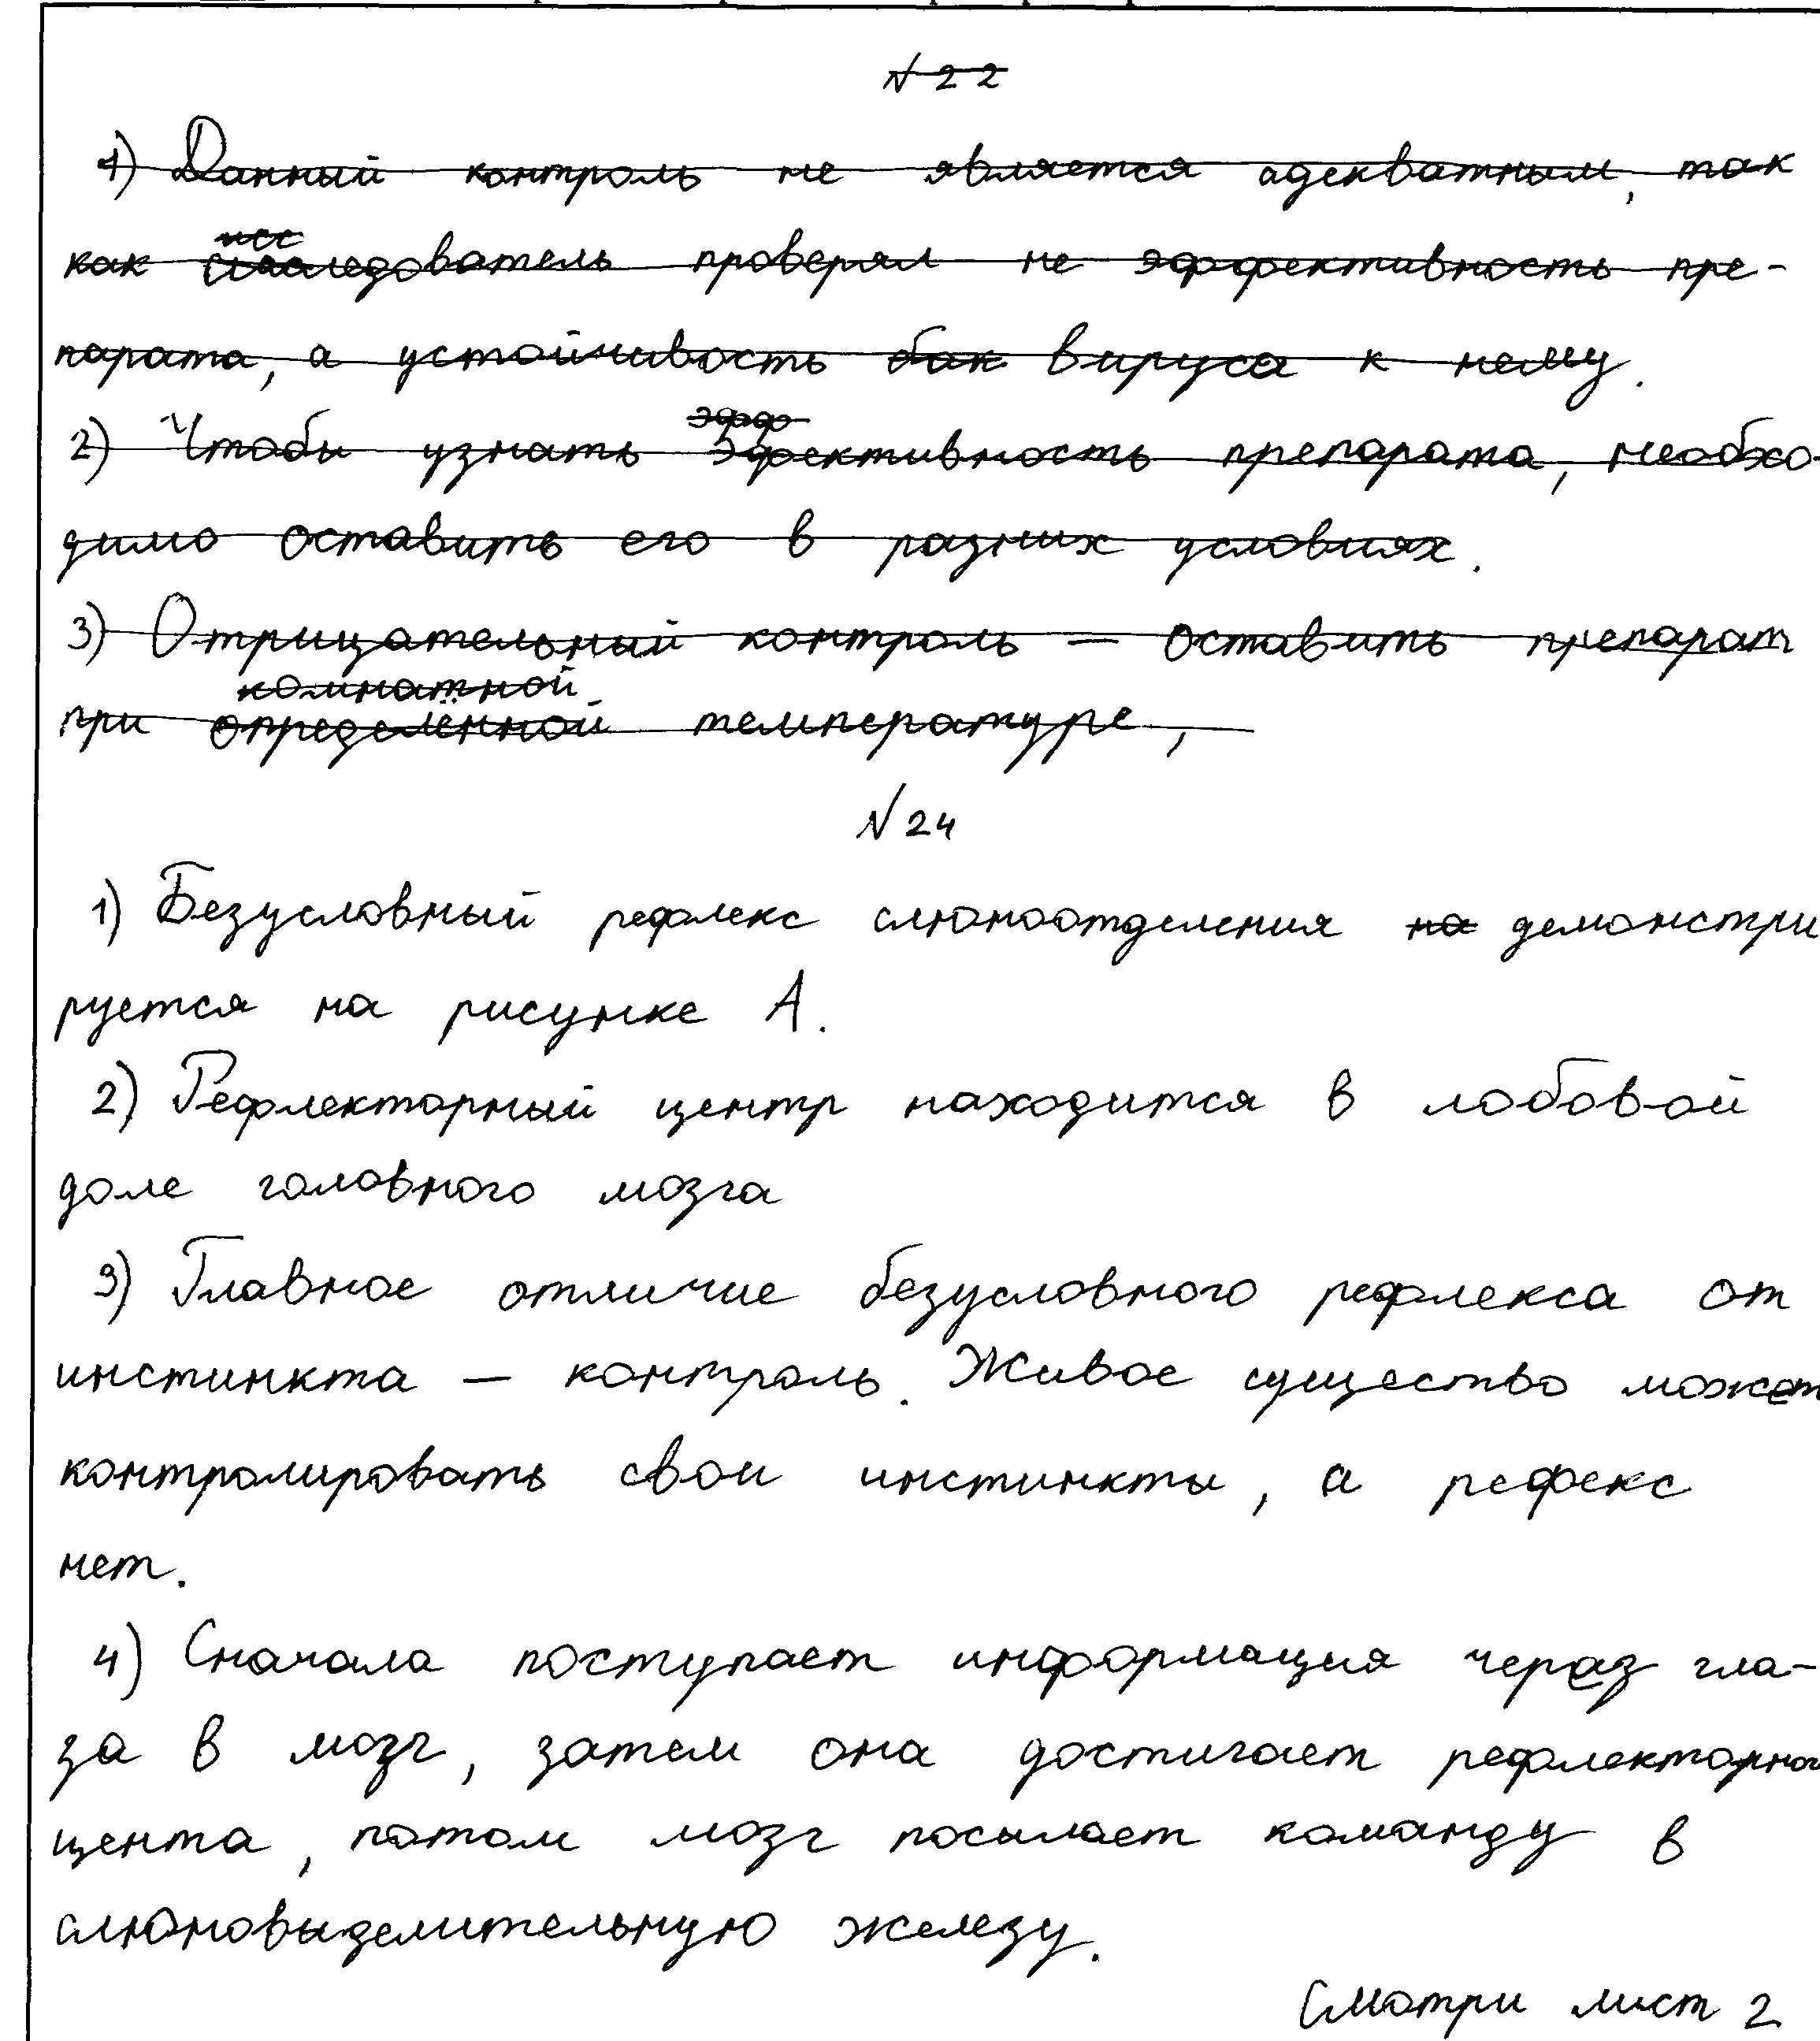 №22
1) Данный контроль не является адекватным, так
исс
как следователь проверял не эффективность пре-
парата, а устойчивость бак вируса к нему.
эфф
2) Чтобы узнать эфективность препарата, необхо-
димо оставить его в разных условиях.
3) Отрицательный контроль — оставить препарат
комнатной
при определённой температуре,
№24
1) Безусловный рефлекс слюноотделения на демонстри
руется на рисунке А.
2) Рефлекторный центр находится в лобовой
доле головного мозга
3) Главное отличие безусловного рефлекса от
инстинкта — контроль. Живое существо может
контролировать свои инстинкты, а рефекс
нет.
4) Сначала поступает информация через гла-
за в мозг, затем она достигает рефлекторного
цента, потом мозг посылает команду в
слюновыделительную железу.
Смотри лист 2